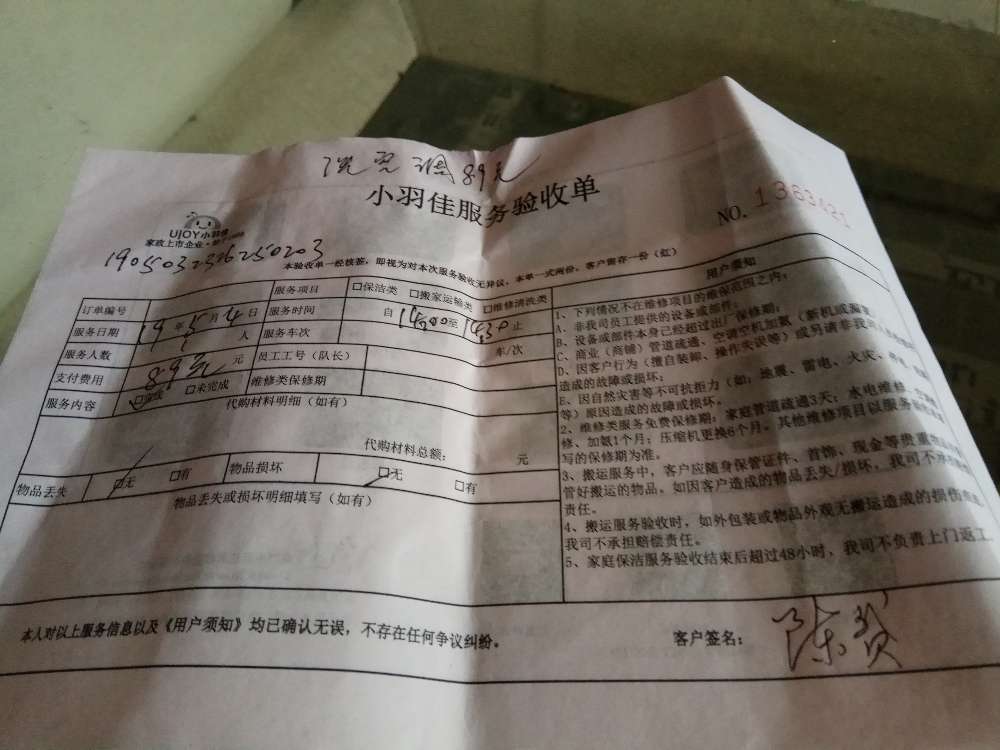 洗空调89元
小羽佳服务验收单
NO. 1363421
UJOY小羽佳
家政上市企业
1905032326250203
本验收单一经核签,即视为对本次服务验收无异议,本单一式两份,客户留存一份(红)
订单编号 服务项目 □保洁类 □搬家运输类 □维修清洗类
服务日期 19年5月4日 服务时间 自14:00至14:30止
服务人数 人 服务车次 车/次
支付费用 89元 元 员工工号(队长)
服务内容 □完成 □未完成 维修类保修期
代购材料明细(如有)
代购材料总额: 元
物品丢失 □无 □有 物品损坏 □无 □有
物品丢失或损坏明细填写(如有)
用户须知
1、下列情况不在维修项目的维保范围之内:
A、非我司员工提供的设备或部件;
B、设备或部件本身已经超过出厂保修期;
C、商业(商铺)管道疏通、空调空机加氟(新机或漏氟
D、因客户行为(擅自装卸、操作失误等)或另请非我司
造成的故障或损坏;
E、因自然灾害等不可抗拒力(如:地震、雷电、火灾、
等)原因造成的故障或损坏。
2、维修类服务免费保修期:家庭管道疏通3天;水电维修、
修、加氨1个月;压缩机更换6个月。其他维修项目以服务验收单
写的保修期为准。
3、搬运服务中,客户应随身保管证件、首饰、现金等贵重物品
管好搬运的物品,如因客户造成的物品丢失/损坏,我司不承担
责任。
4、搬运服务验收时,如外包装或物品外观无搬运造成的损伤
我司不承担赔偿责任。
5、家庭保洁服务验收结束后超过48小时,我司不负责上门返工
本人对以上服务信息以及《用户须知》均已确认无误,不存在任何争议纠纷。 客户签名: 陈